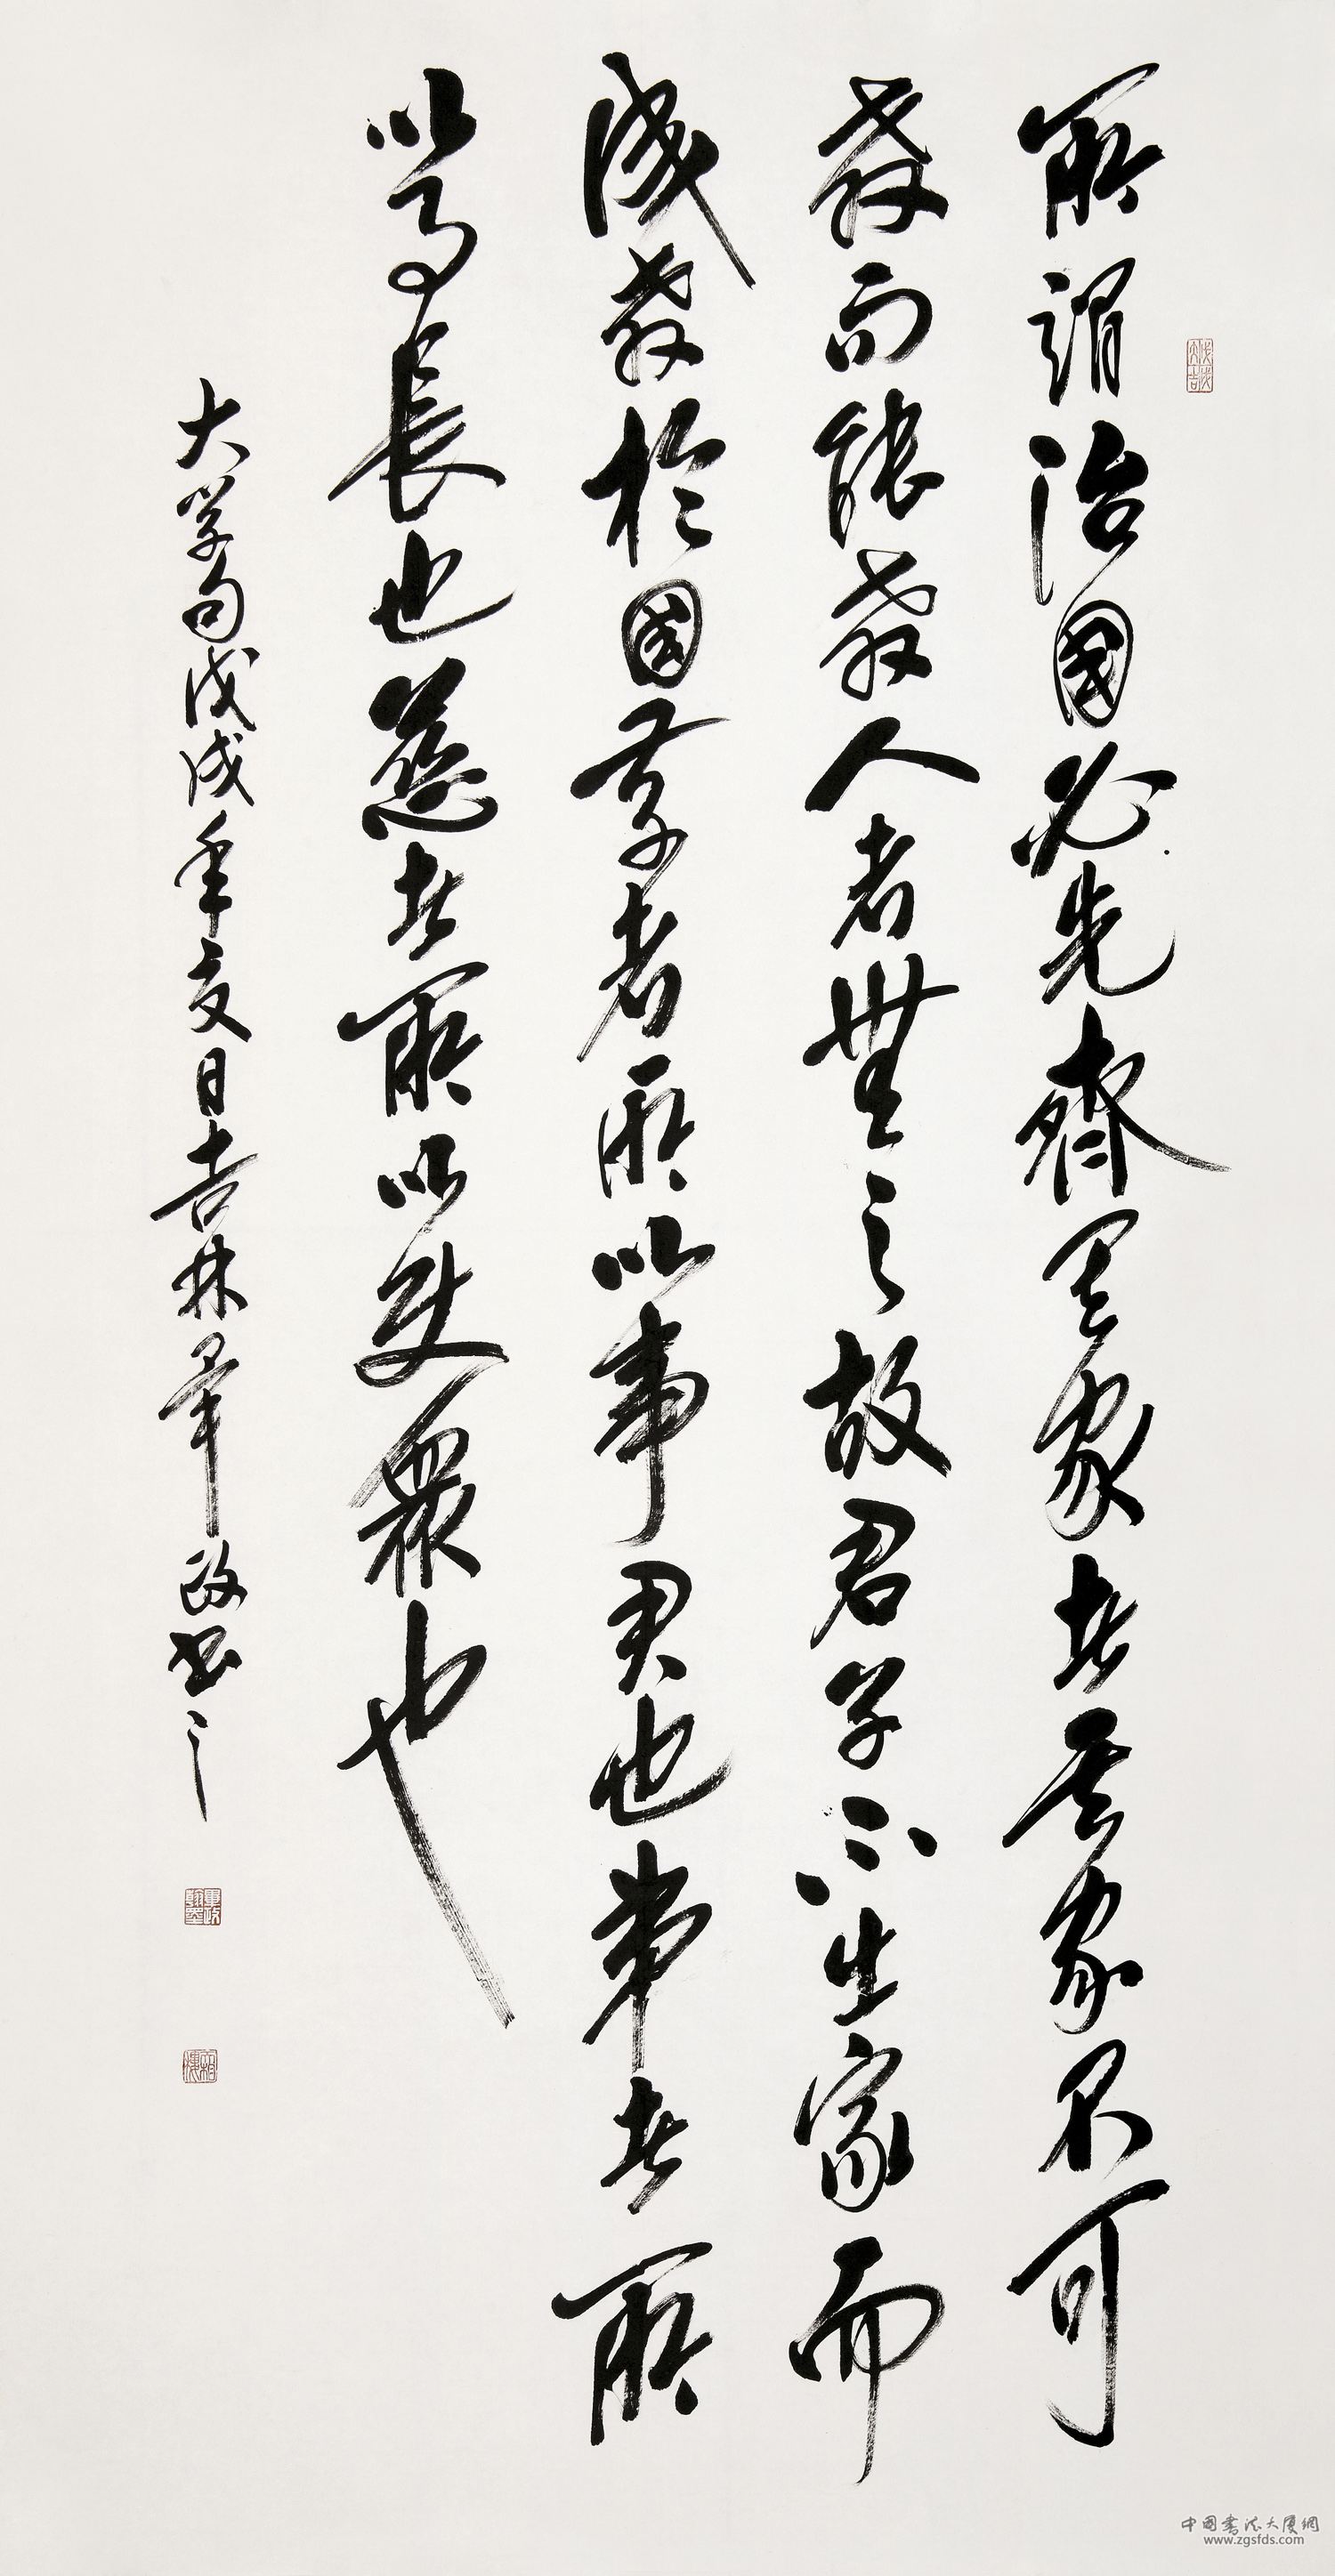 所謂治國必先齊其家者其家不可
教而能教人者無之故君子不出家而
成教於國孝者所以事君也弟者所
以事長也慈者所以使衆也
大学句戊戌年夏日吉林政書之
戊戌大吉
中國書法大厦網
www.zgsfds.com